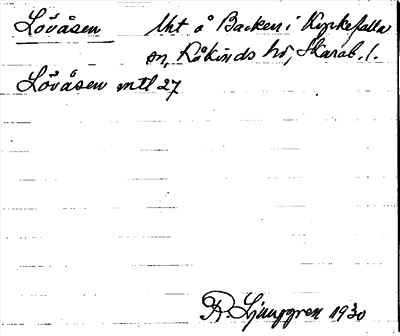 Lövåsen Uht å Backen i Kyrkefalla
sn, Kåkinds hd, Skarab. l.
Lövåsen mtl 27
R. Ljunggren 1930